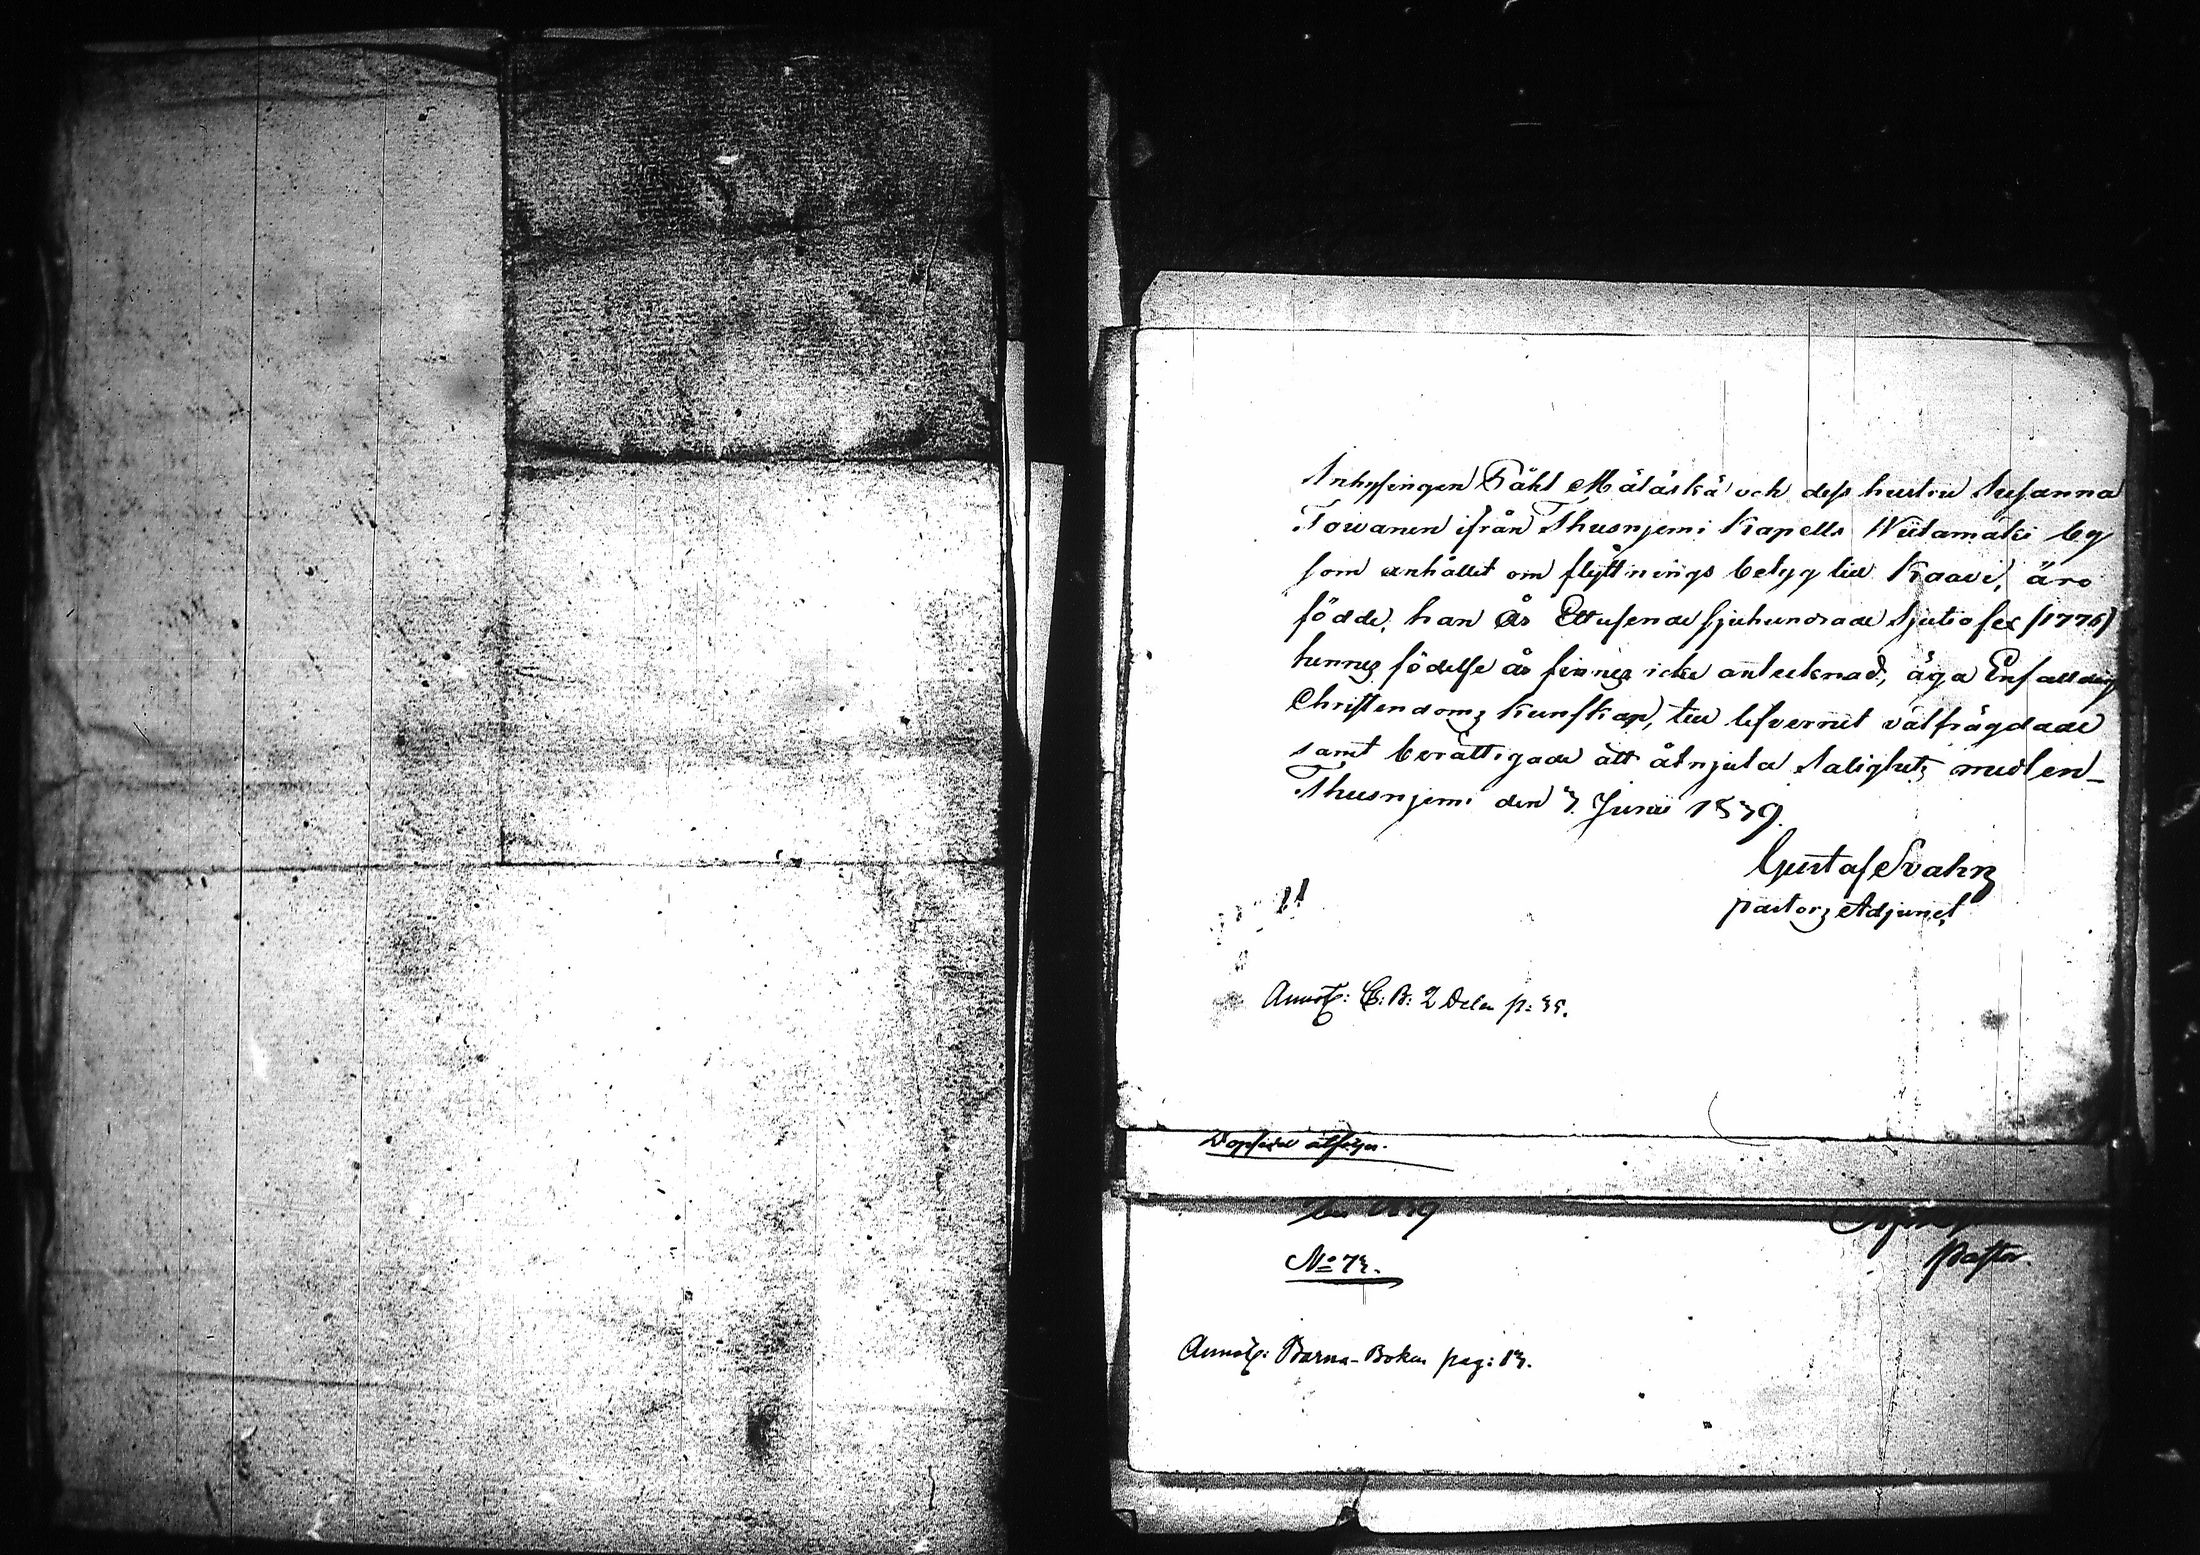 Inhysingen Påhl Mälåskä och dess hustru Susanna
Towanen ifrån Thusnjemi Kapells Wiitamäki by
som anhållit om flyttnings betyg till Kaavi, äro
födde, han År Ettusende sjuhundrade Sjutiosex (1776)
hennes födelse år finnes icke antecknad, äga Enfaldig
Christendoms kunskap, till lefvernet välfrägdade
samt berättigade att åtnjuta Salighets medlen_
Thusnjemi den 3. Junii 1839.
Gustaf Svahn
pastors Adjunct
Annot: C: B: 2 Delen p: 35.
Dopsedel åtföljer.
1839
No 73.
Pastor.
Annot: Barna-Boken pag: 13.